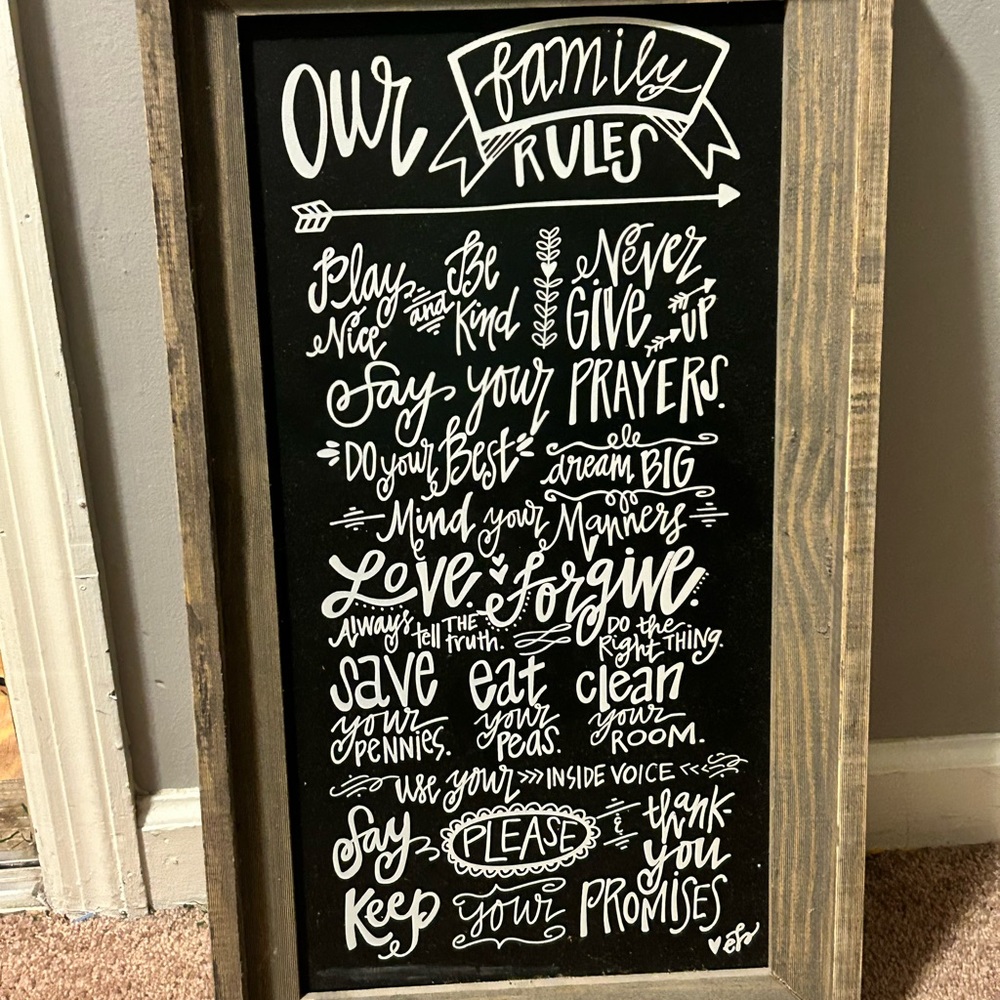 Our family
RULES
Play Nice and Be Kind
Never GIVE UP
Say your PRAYERS.
DO your Best
dream BIG
Mind your Manners
Love. forgive.
Always tell THE truth.
DO the Right THING.
save your PENNIES.
eat your Peas.
clean your ROOM.
use your INSIDE VOICE
Say PLEASE & thank-you
Keep your PROMISES